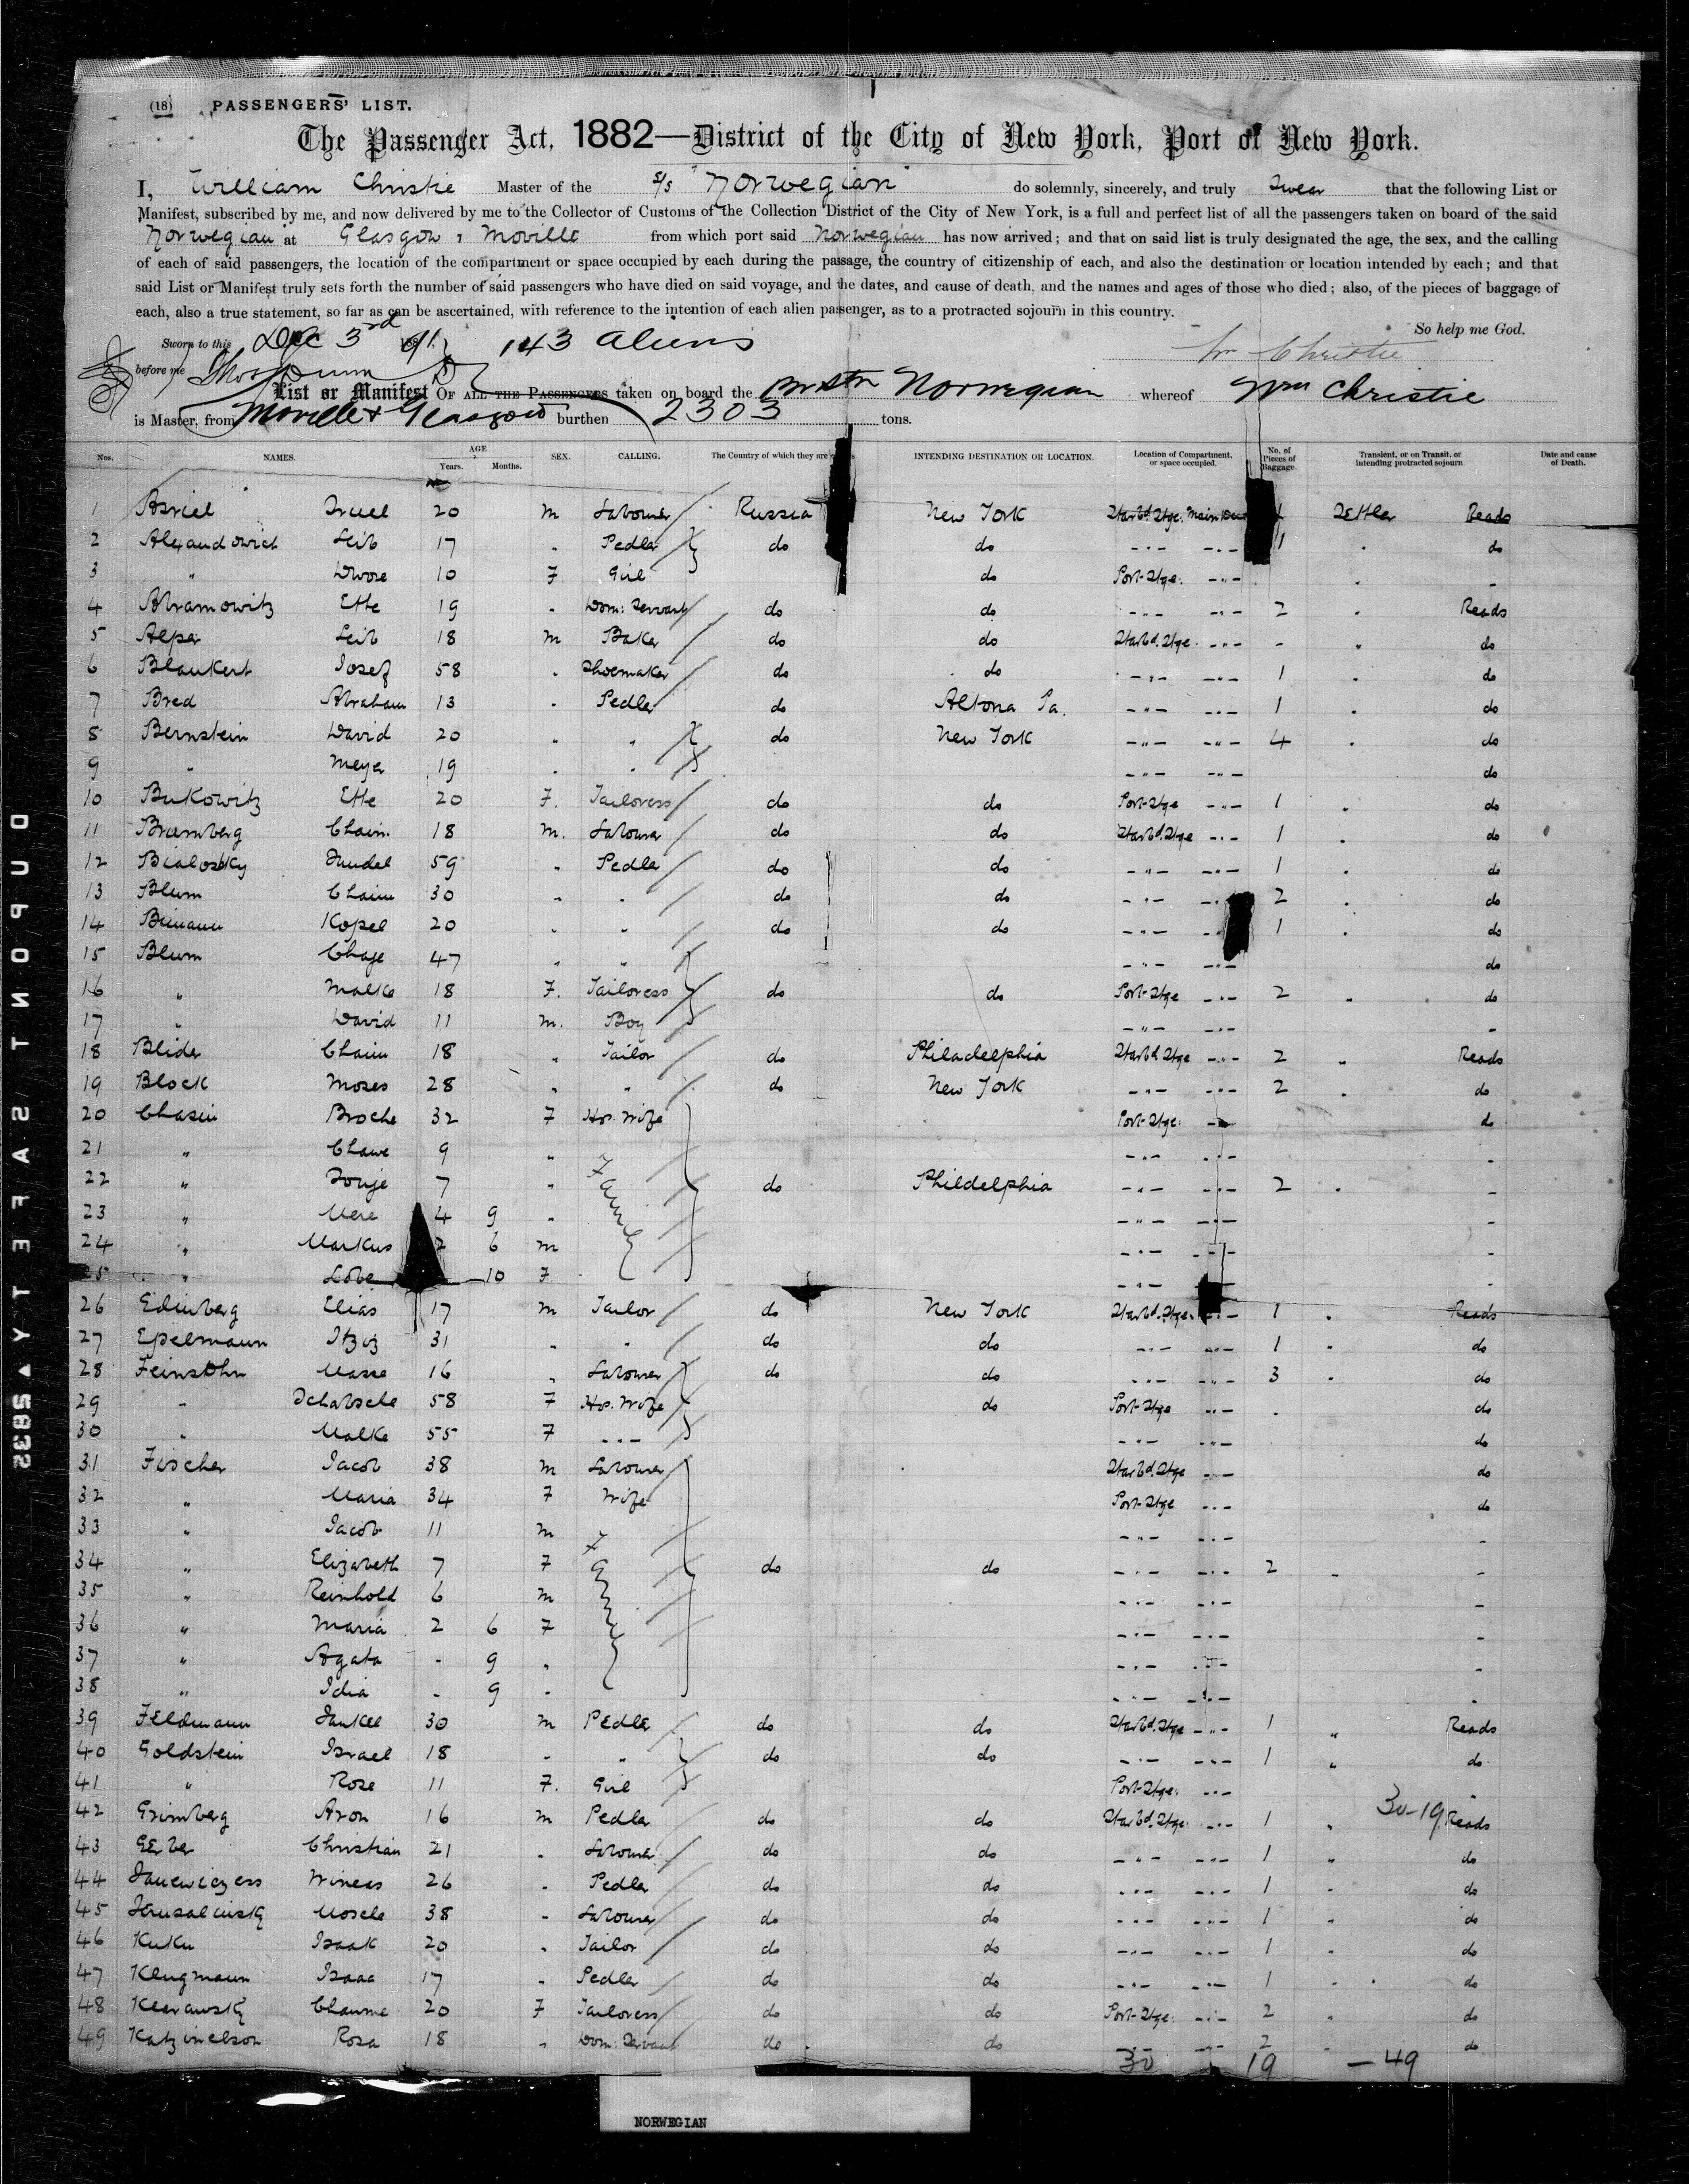 (18) PASSENGERS' LIST.
The Passenger Act, 1882—District of the City of New York, Port of New York.
I, William Christie Master of the S/S "Norwegian" do solemnly, sincerely, and truly Swear that the following List or
Manifest, subscribed by me, and now delivered by me to the Collector of Customs of the Collection District of the City of New York, is a full and perfect list of all the passengers taken on board of the said
Norwegian at Glasgow & Moville from which port said Norwegian has now arrived; and that on said list is truly designated the age, the sex, and the calling
of each of said passengers, the location of the compartment or space occupied by each during the passage, the country of citizenship of each, and also the destination or location intended by each; and that
said List or Manifest truly sets forth the number of said passengers who have died on said voyage, and the dates, and cause of death, and the names and ages of those who died; also, of the pieces of baggage of
each, also a true statement, so far as can be ascertained, with reference to the intention of each alien passenger, as to a protracted sojourn in this country.
So help me God.
Sworn to this Dec 3rd 1891. 143 Aliens
Wm Christie
before me
List or Manifest OF ALL THE PASSENGERS taken on board the Br Str Norwegian whereof Wm Christie
is Master, from Moville & Glasgow burthen 2303 tons.
Nos. NAMES. AGE Years. Months. SEX. CALLING. The Country of which they are INTENDING DESTINATION OR LOCATION. Location of Compartment, or space occupied. No. of Pieces of Baggage. Transient, or on Transit, or intending protracted sojourn Date and cause of Death.
1 20 m Labourer Russia New York Starbd. Stge. Main Deck Settler Reads
2 Alexandowich Leib 17 " Pedler do do -"- -"- 1 " do
3 " Dwore 10 F Girl do Port Stge. -"- " -
4 Abramowitz Ette 19 " Dom: Servant do do -"- -"- 2 " Reads
5 Alper Leib 18 m Baker do do Starbd. Stge. -"- - " do
6 Blankert Josef 58 " Shoemaker do do -"- -"- 1 " do
7 Bred Abraham 13 " Pedler do Altona Pa. -"- -"- 1 " do
8 Bernstein David 20 " " do New York -"- -"- 4 " do
9 " Meyer 19 " " -"- -"- do
10 Bukowitz Ette 20 F. Tailoress do do Port Stge -"- 1 " do
11 Bramberg Chaim 18 m. Labourer do do Starbd. Stge -"- 1 " do
12 Bialostky 59 " Pedler do do -"- -"- 1 " do
13 Blum Chaim 30 " " do do -"- -"- 2 " do
14 Kopel 20 " " do do -"- -"- 1 " do
15 Blum Chaje 47 " " -"- -"- do
16 " Malke 18 F. Tailoress do do Port Stge -"- 2 " do
17 " David 11 m. Boy -"- -"- -
18 Blider Chaim 18 " Tailor do Philadelphia Starbd Stge -"- 2 " Reads
19 Block Moses 28 " " do New York -"- -"- 2 " do
20 Chasin Broche 32 F Hos. Wife Port Stge. do
21 " Chawe 9 " Family -"- -"- -
22 " 7 " do Phildelphia -"- -"- 2 " -
23 " Mere 4 9 " -"- -"- -
24 " Markus 2 6 m -"- -"- -
25 " Lobe 10 F -"- -
26 Edinberg Elias 17 m Tailor do New York Starbd. Stge. -"- 1 " Reads
27 Epelmann Itzig 31 " " do do -"- -"- 1 " do
28 Feinsohn 16 " Labourer do do -"- -"- 3 " do
29 " 58 F Hos. Wife do Port Stge -"- " do
30 " Malke 55 F -"- -"- -"- do
31 Fischer Jacob 38 m Labourer Starbd. Stge -"- do
32 " Maria 34 F Wife Port Stge -"- do
33 " Jacob 11 m Family -"- -"- -
34 " Elizabeth 7 F do do -"- -"- 2 " -
35 " Reinhold 6 m -"- -"- -
36 " Maria 2 6 F -"- -"- -
37 " Agata - 9 " -"- -"- -
38 " Idia - 9 " -"- -"- -
39 Feldmann Jankel 30 m Pedler do do Starbd. Stge -"- 1 " Reads
40 Goldstein Israel 18 " " do do -"- -"- 1 " do
41 " Rose 11 F. Girl Port Stge. -"- -
42 Grimberg Aron 16 m Pedler do do Starbd. Stge -"- 1 " 30-19 Reads
43 Gerber Christian 21 " Labourer do do -"- -"- 1 " do
44 26 " Pedler do do -"- -"- 1 " do
45 38 " Labourer do do -"- -"- 1 " do
46 Kuku Isaak 20 " Tailor do do -"- -"- 1 " do
47 Klugmann Isaac 17 " Pedler do do -"- -"- 1 " do
48 Chaume 20 F Tailoress do do Port Stge. -"- 2 " do
49 Katzinelson Rosa 18 " Dom: Servant do do -"- -"- 2 " do
30 19 — 49
NORWEGIAN
DUPONT SAFETY